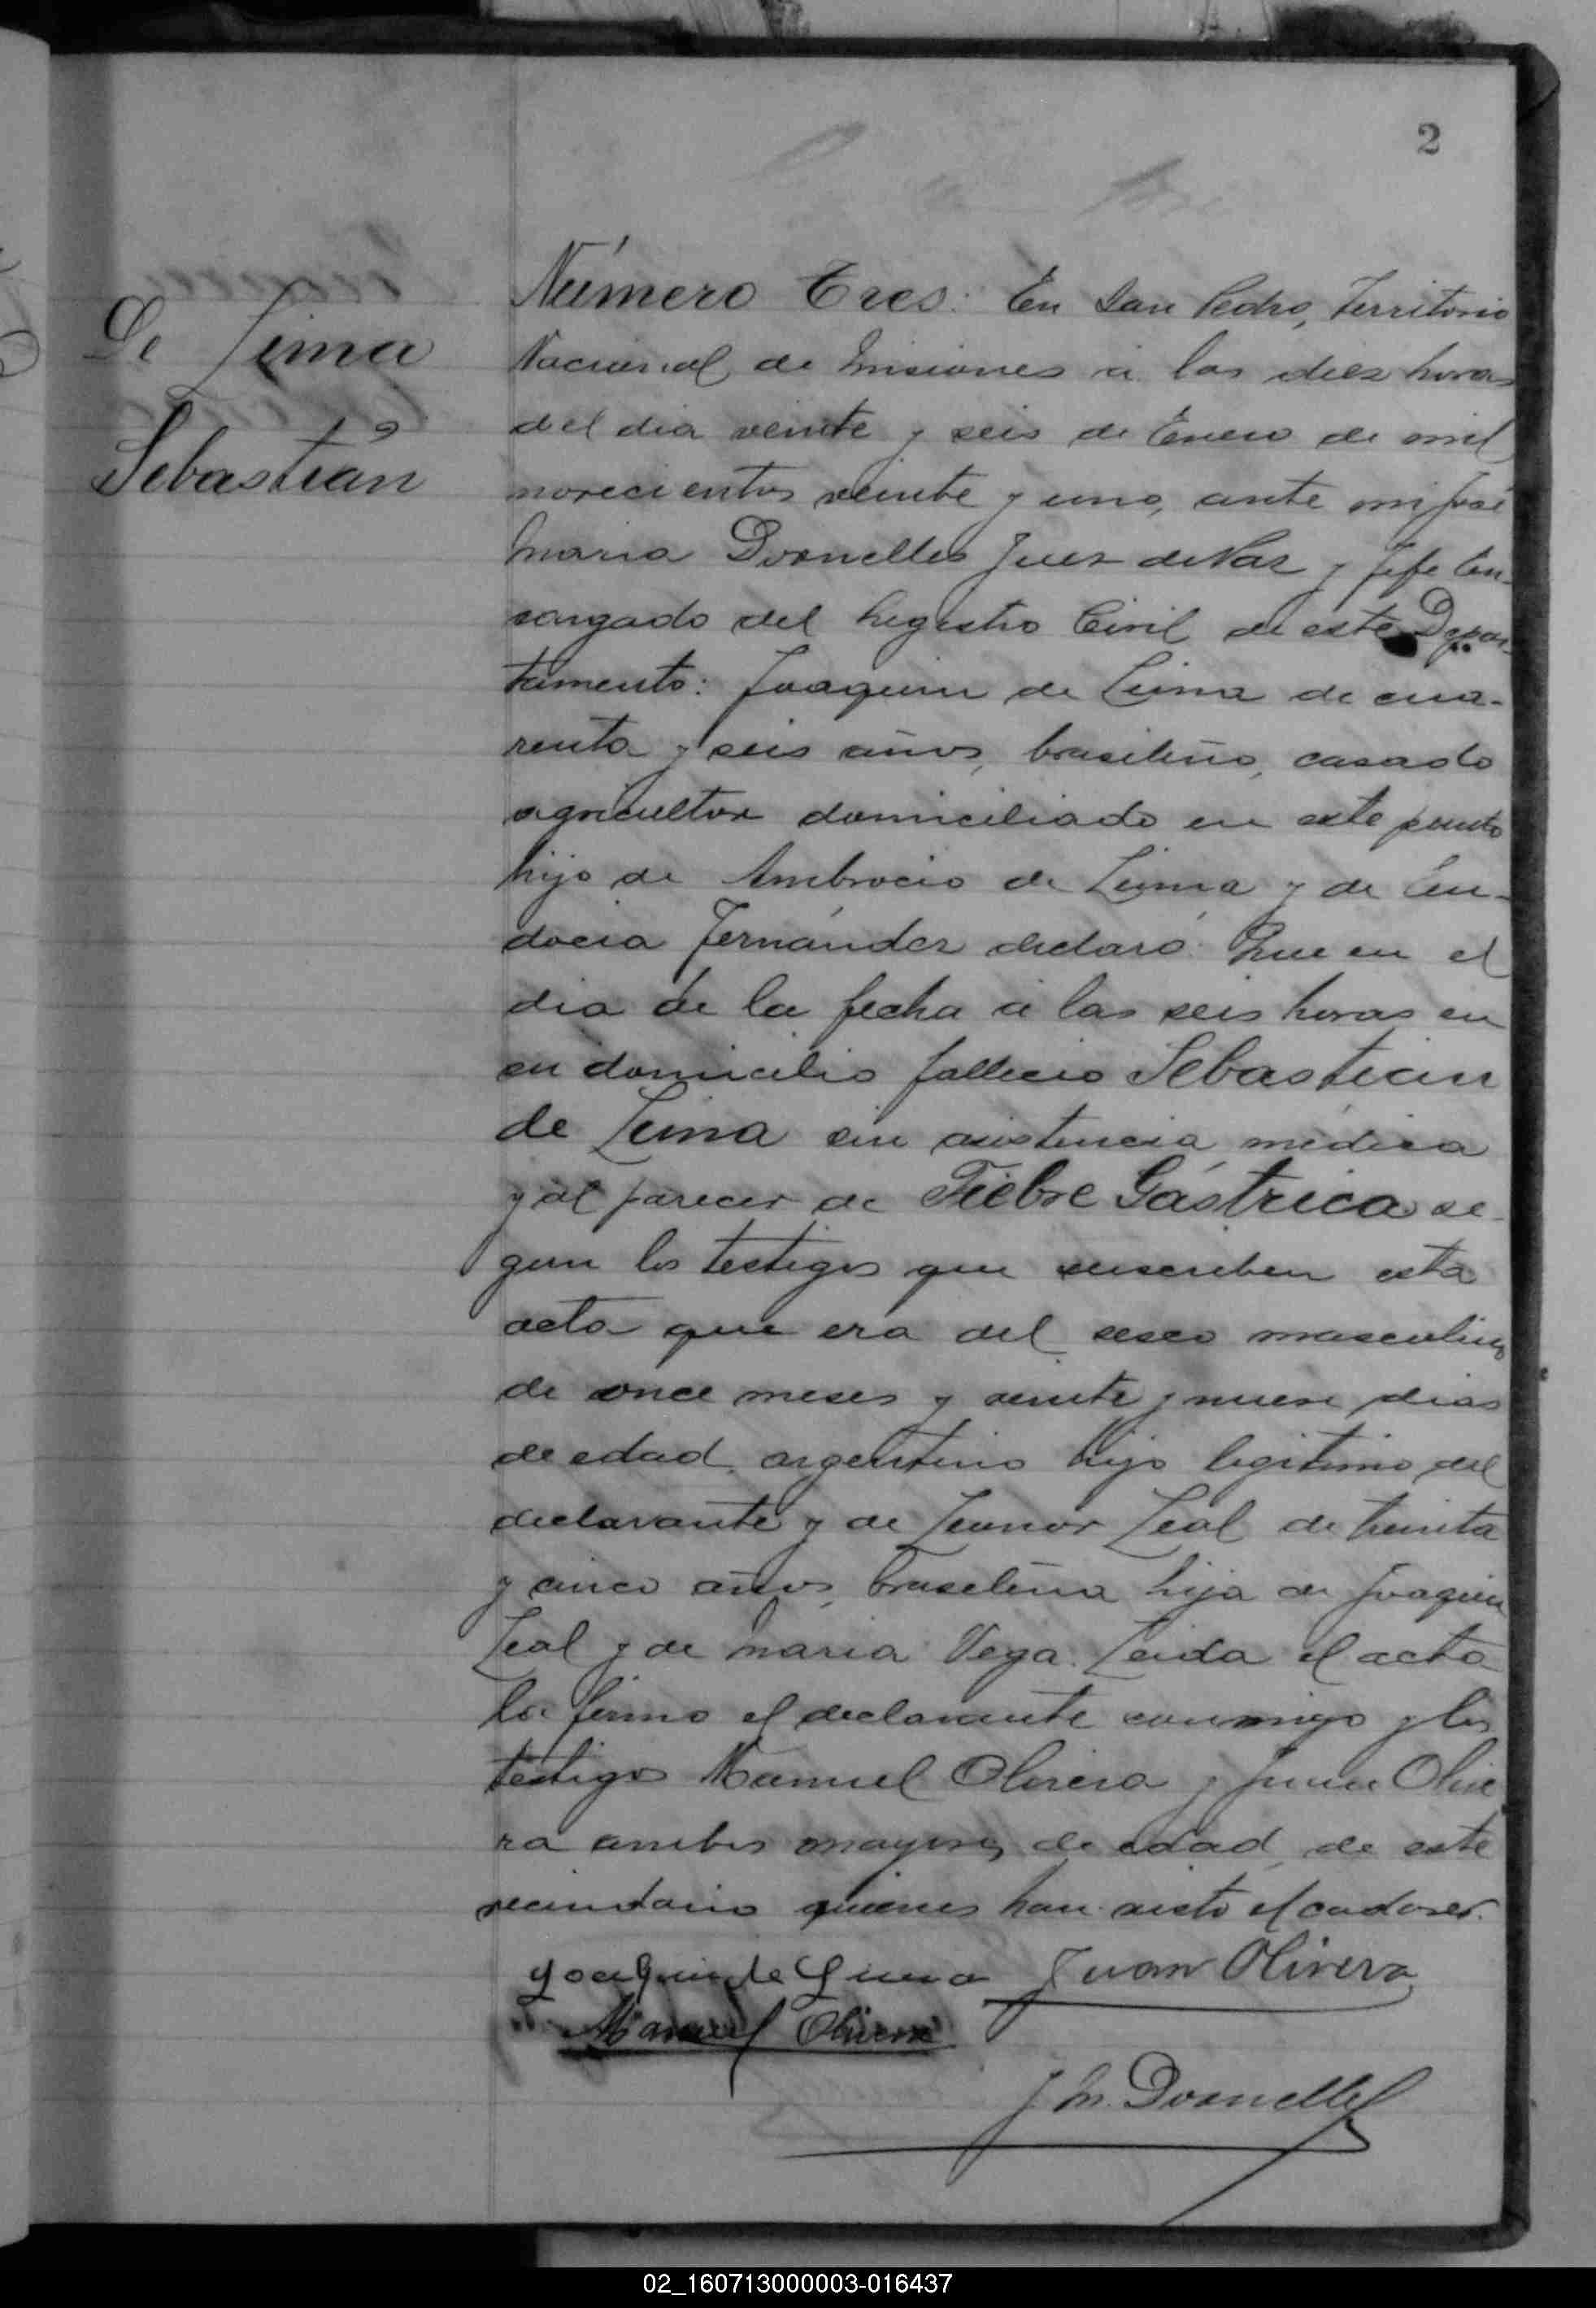 2
De Lima
Sebastián
Número Tres: En San Pedro, Territorio
Nacional de Misiones á las diez horas
del dia veinte y seis de Enero de mil
novecientos veinte y uno, ante mi José
Maria Dornelles Juez de Paz y Jefe En-
cargado del Registro Civil de este Depar-
tamento: Joaquin de Lima de cua-
renta y seis años, brasileño, casado
agricultor domiciliado en este punto
hijo de Ambrocio de Lima y de Eu-
docia Fernández declaró: Que en el
dia de la fecha á las seis horas en
su domicilio fallecio Sebastian
de Lima sin asistencia médica
y al parecer de Fiebre Gástrica se-
gun los testigos que suscriben esta
acta que era del sexo masculino
de once meses y veinte y nueve dias
de edad, argentino hijo legitimo del
declarante y de Leonor Leal de treinta
y cinco años, brasileña hija de Joaquin
Leal y de Maria Vega. Leida el acta
la firmo el declarante conmigo y los
testigos Manuel Olivera y Juan Olive
ra ambos mayores de edad, de este
vecindario quienes han visto el cadaver.
Yoaquin de Lima Juan Olivera
Manuel Olivera
J M. Dornelles
02_160713000003-016437